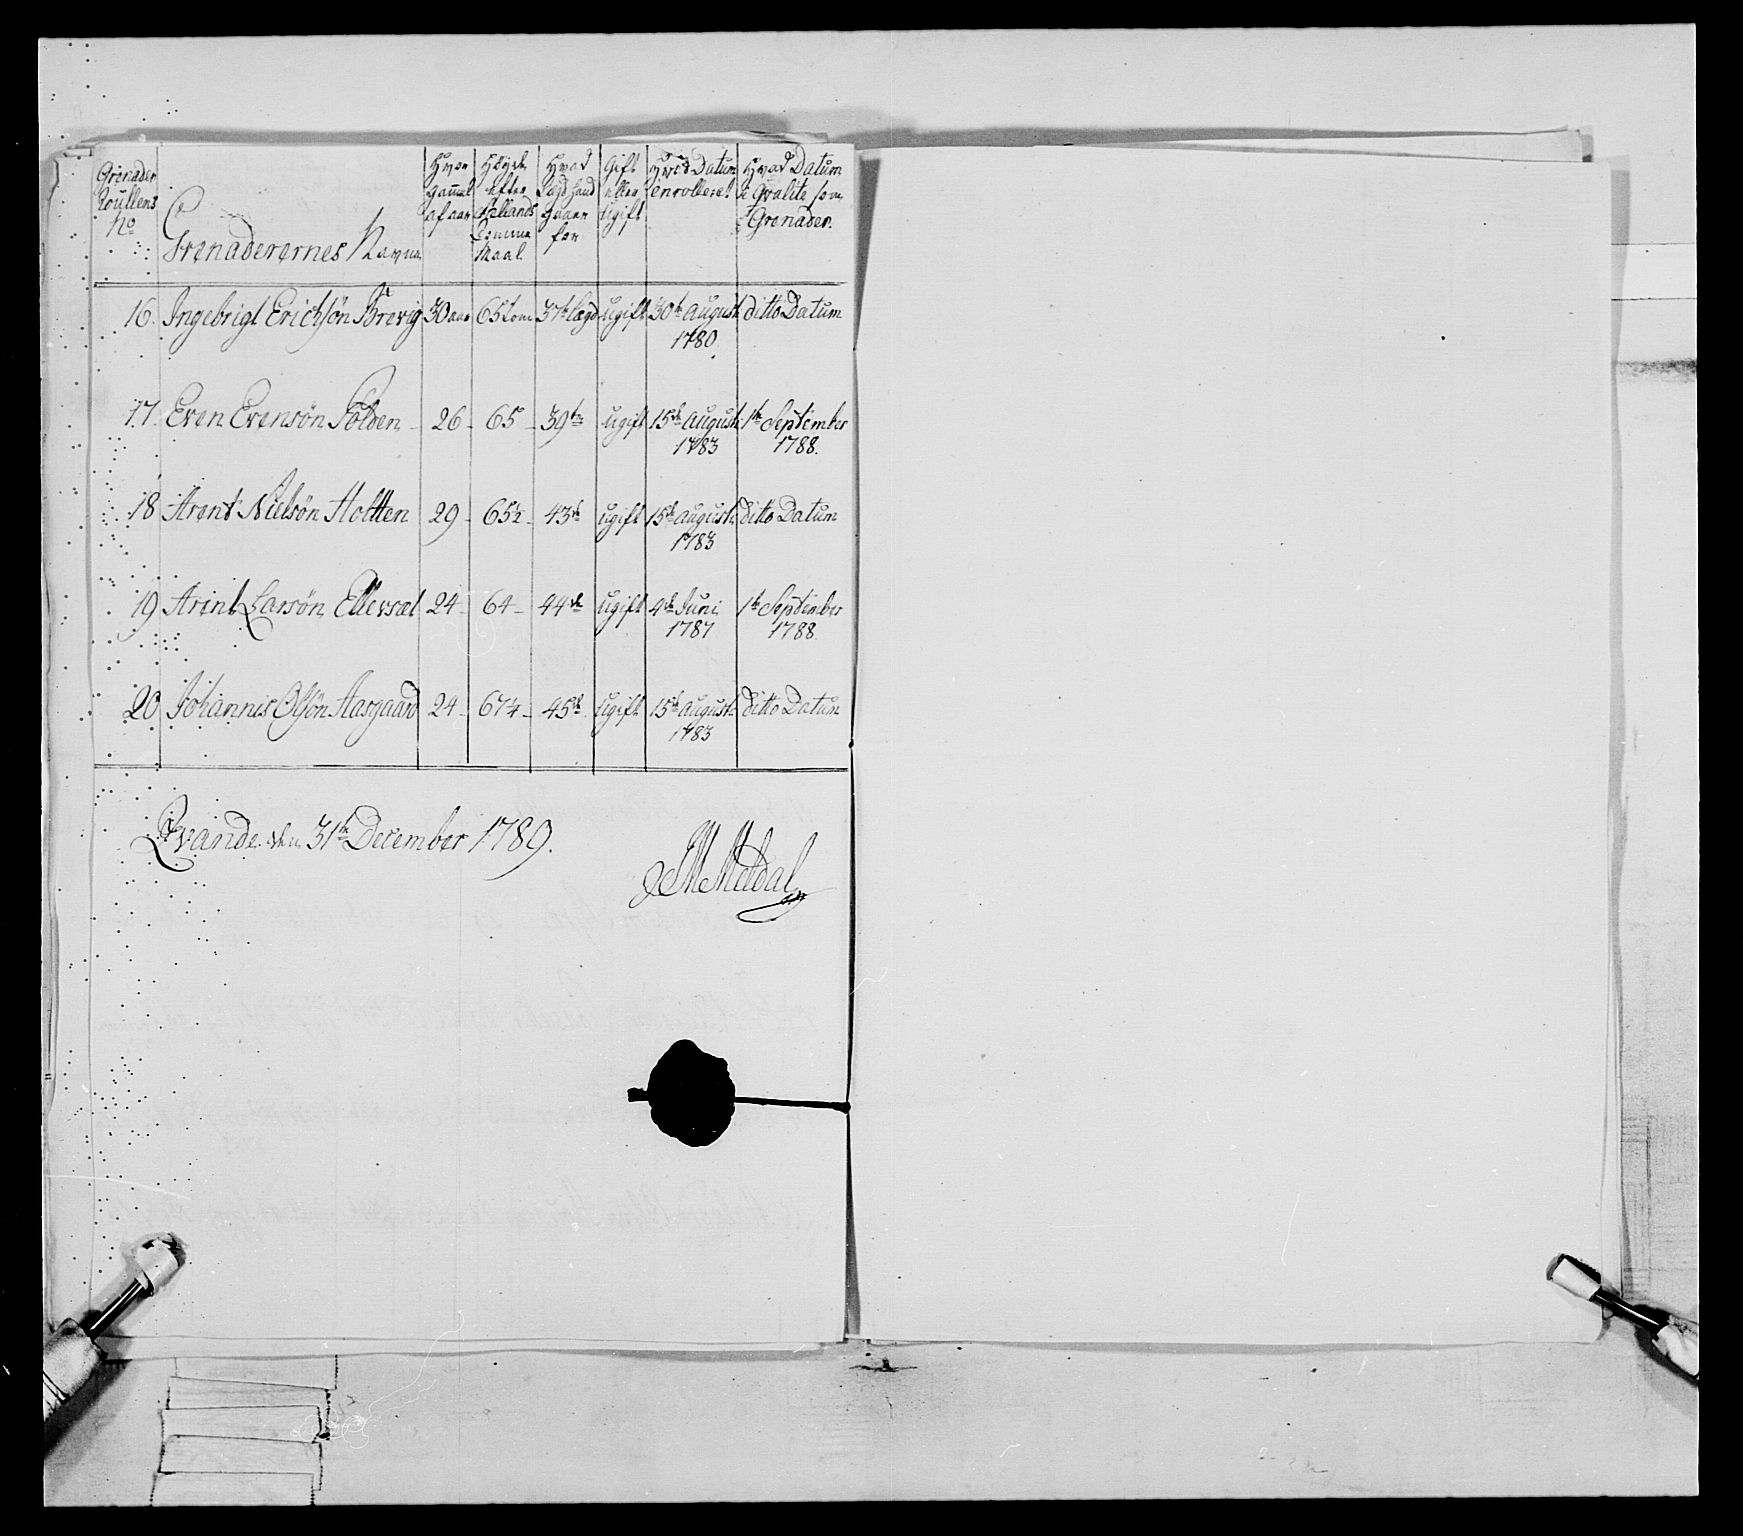 Grenader
Roullens
No
Grenaderernes Navne
Hvor
gammel
af aar
Høyde
efter
Sellands
Tomme
Maal
Hvad
Lægd hand
staaer
for
Gift
eller
ugift
Hvad Datum
enrolleret
Hvad Datum
i Qvalite som
Grenader.
16. Ingebrigt Erichsøn Brevig 30 aar 65 tom 37te lægd ugift 30te August ditto Datum
1780.
17. Even Evensøn Folden 26 - 65 - 39te ugift 15de August 1te September
1783 1788.
18 Arent Nielsøn Holtten 29 - 65½ - 43de ugift 15de August ditto Datum
1783
19 Arent Larsøn Ellevsæt 24 - 64 - 44de ugift 4de Juni 1te September
1787 1788.
20 Johannis Olsøn Aasgaard 24 - 67¼ - 45de ugift 15de August ditto Datum
1783
Qvande den 31te December 1789.
JM Meldal